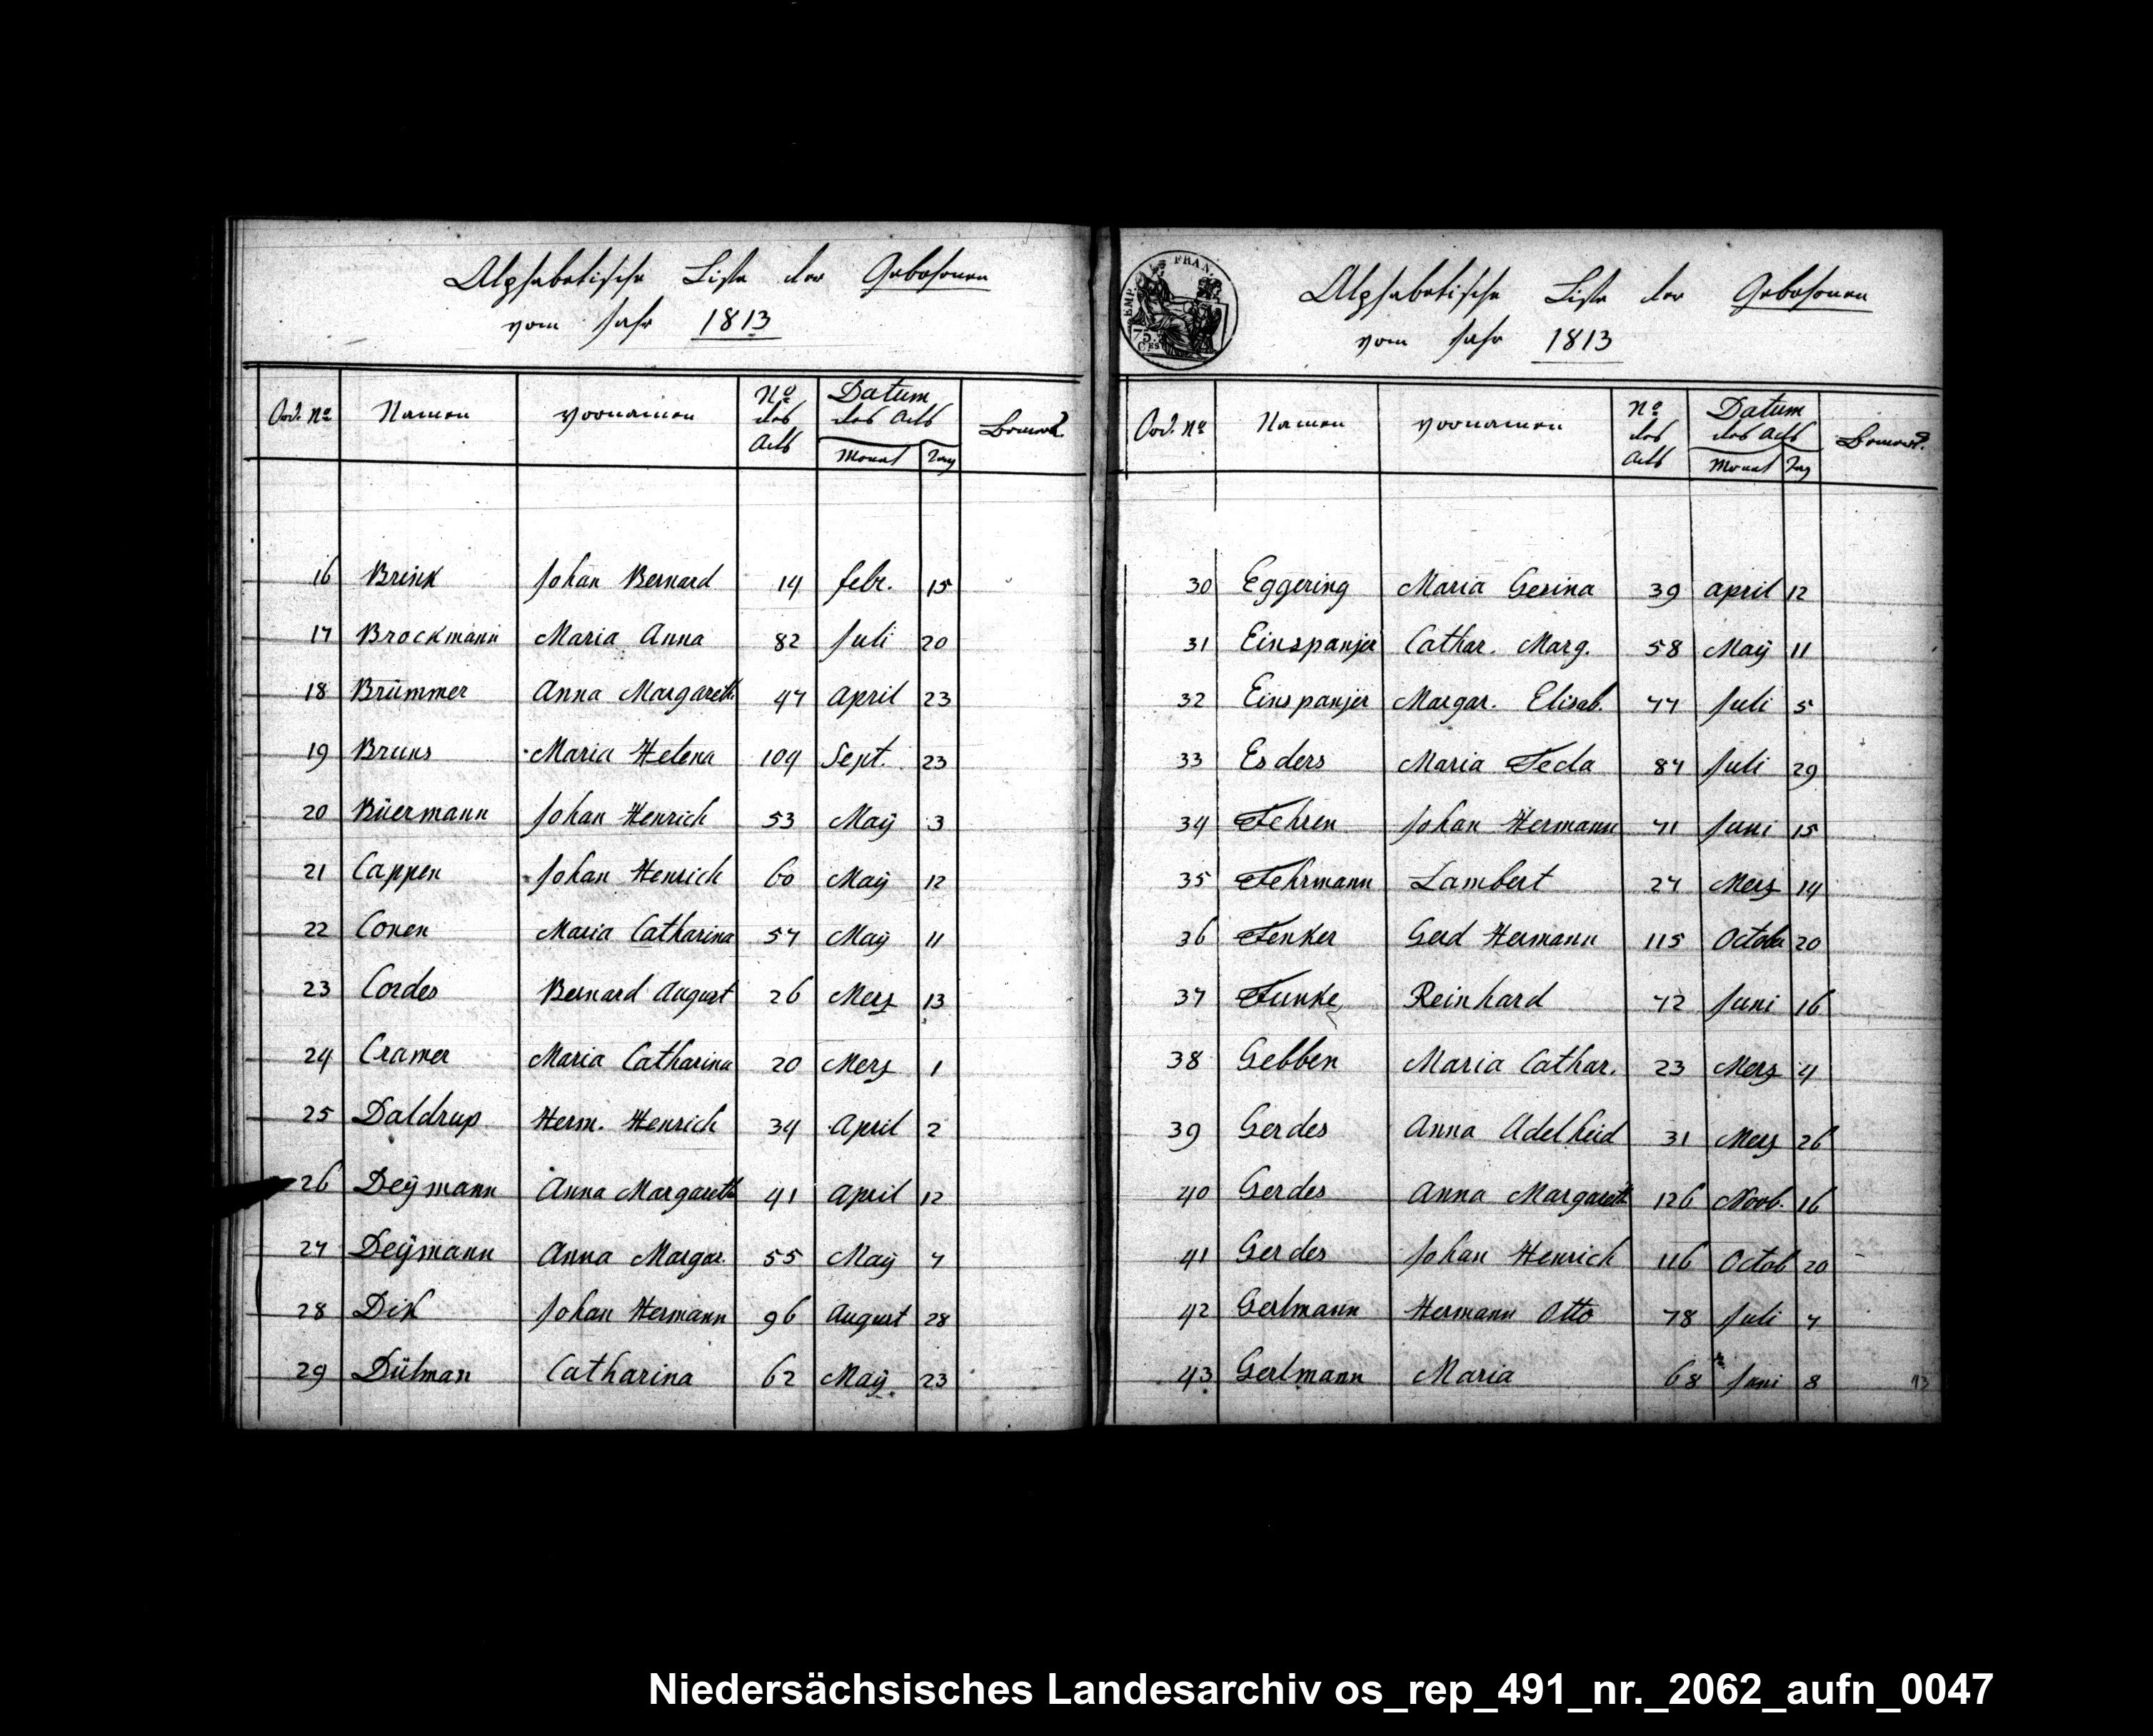 Alphabetische Liste der Gebohrnen
vom Jahr 1813
Ord. No Namen Vornamen No des Acts Datum des Acts Monat Tag Bemerk.
16 Brink Johan Bernard 14 febr. 15
17 Brockmann Maria Anna 82 Juli 20
18 Brümmer Anna Margareth 47 April 23
19 Bruns Maria Helena 104 Sept. 23
20 Büermann Johan Henrich 53 Maÿ 3
21 Cappen Johan Henrich 60 Maÿ 12
22 Conen Maria Catharina 57 Maÿ 11
23 Cordes Bernard August 26 Merz 13
24 Cramer Maria Catharina 20 Merz 1
25 Daldrup Herm. Henrich 34 April 2
26 Deÿmann Anna Margareth 41 April 12
27 Deÿmann Anna Margar. 55 Maÿ 7
28 Dik Johan Hermann 96 August 28
29 Dülman Catharina 62 Maÿ 23
EMP. FRAN.
75. CES
Alphabetische Liste der Gebohrnen
vom Jahr 1813
Ord. No Namen Vornamen No des Acts Datum des Acts Monat Tag Bemerk.
30 Eggering Maria Gesina 39 April 12
31 Einspanjer Cathar. Marg. 58 Maÿ 11
32 Einspanjer Margar. Elisab. 77 Juli 5
33 Esders Maria Teda 87 Juli 29
34 Fehren Johan Hermann 71 Juni 15
35 Fehrmann Lambert 27 Merz 14
36 Fenker Gerd Hermann 115 October 20
37 Funke Reinhard 72 Juni 16
38 Gebben Maria Cathar. 23 Merz 4
39 Gerdes Anna Adelheid 31 Merz 26
40 Gerdes Anna Margareth 126 Novb. 16
41 Gerdes Johan Henrich 116 Octob 20
42 Gerlmann Hermann Otto 78 Juli 7
43 Gerlmann Maria 68 Juni 8
Niedersächsisches Landesarchiv os_rep_491_nr._2062_aufn_0047